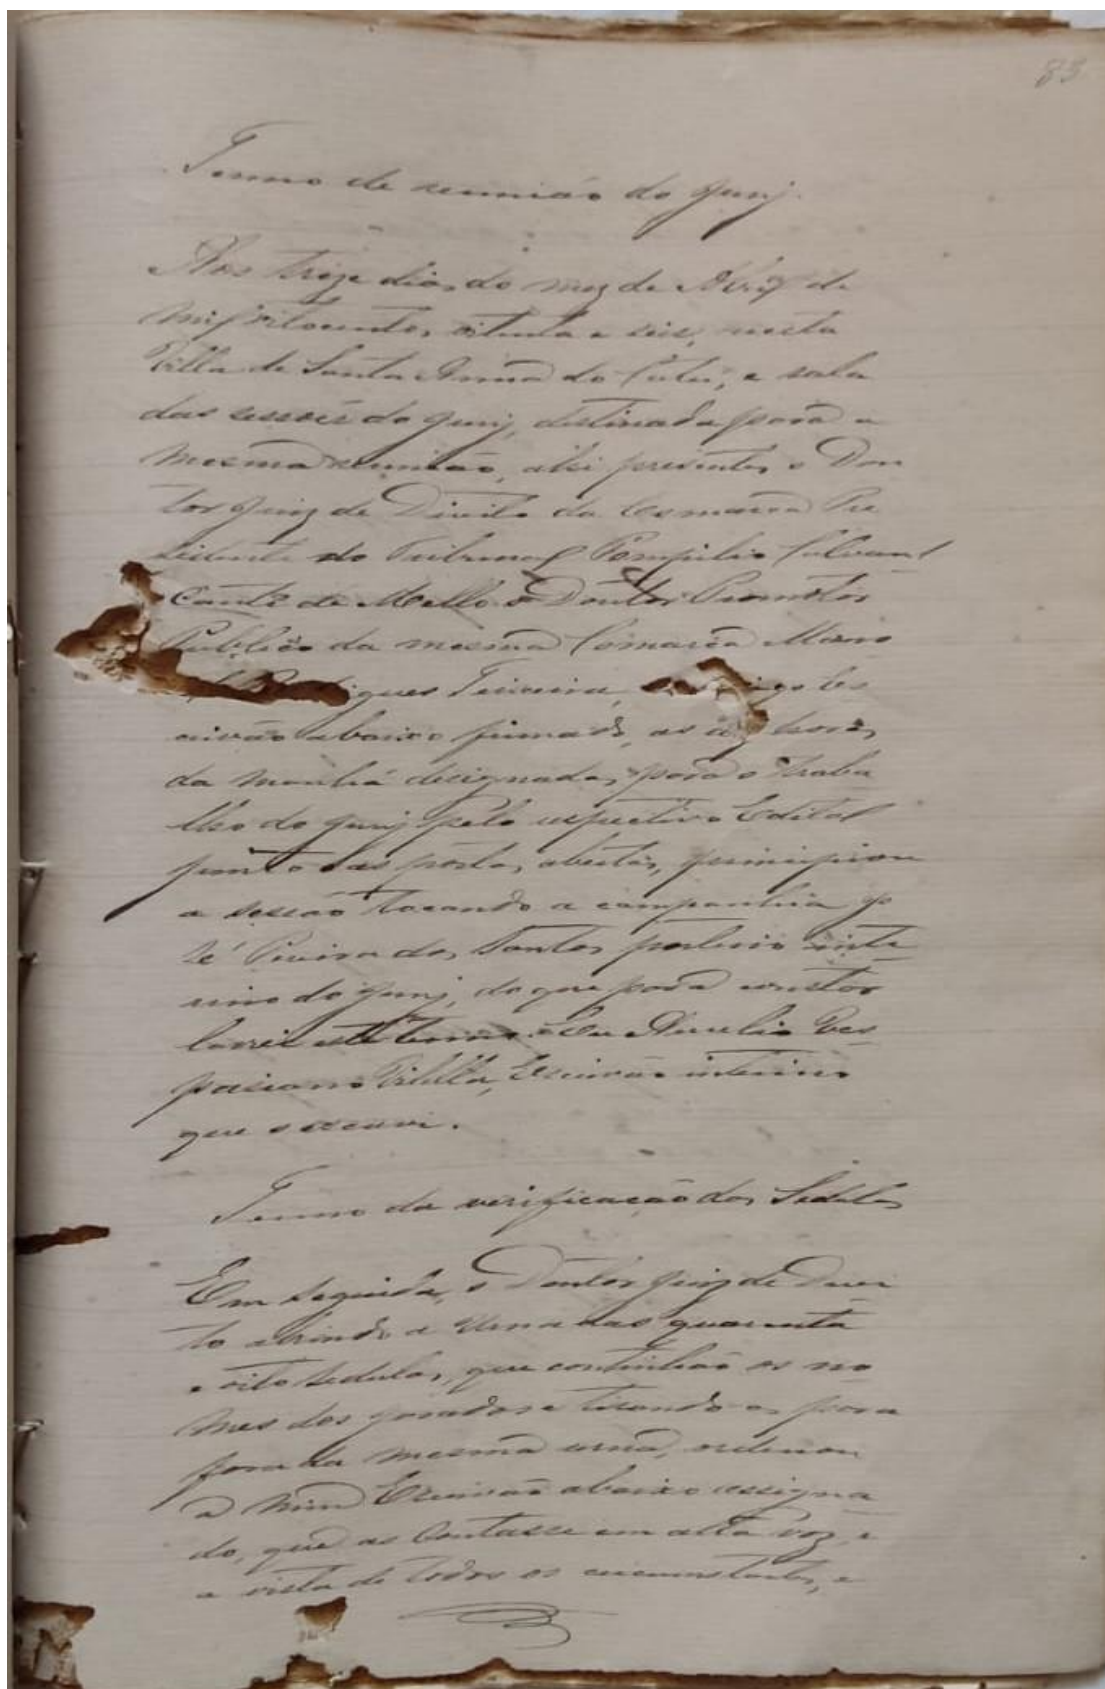 83
Termo de reunião do Jury.
Aos treze dias do mez de Abril de
mil oitocentos oitenta e seis, nesta
Villa de Santa Anna do Catú, e sala
das sessões do Jury, destinada para a
mesma reunião, ahi presentes o Dou
tor Juiz de Direito da Comarca Pre
sidente do Tribunal Pompilio Cavaul
Cante de Mello o Doutor Promotor
Publico da mesma Comarca Mano
igues Teixeira, migo Es
crivão abaixo firmado, as horas
da manhã designadas para o traba
lho do Jury pelo respectivo Edital
junto as portas abertas, principiou
a sessão tocando a campanhia Jo
zé Pereira dos Santos porteiro inte
rino do Jury, do que para constar
lavrei este termo. Eu Aurelio Ves
pasiano Villela, Escrivão interino
que o escrevi.
Termo da verificação das Sedulas
Em seguida, o Doutor Juiz de Direi
to abrindo a Urna das quarenta
e oito sedulas, que continhão os no
mes dos jurados e tirando-os para
fora da mesma urna, ordenou
a mim Escrivão abaixo assigna
do, que as Contasse em alta voz, e
a vista de todos os circumstantes, e